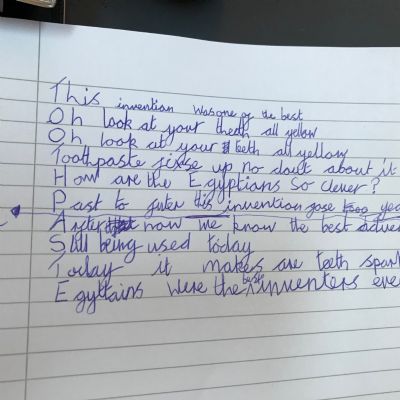 This invention was one of the best
Oh look at your theeth all yellow
Oh look at your teeth all yellow
Toothpaste fixse up no dout about it
How are the Egyptians so clever?
Past to futer this invention gose too yea
After now we know the best adven
Still being used today
Today it makes are teeth spark
Egyttains were the best inventers eve